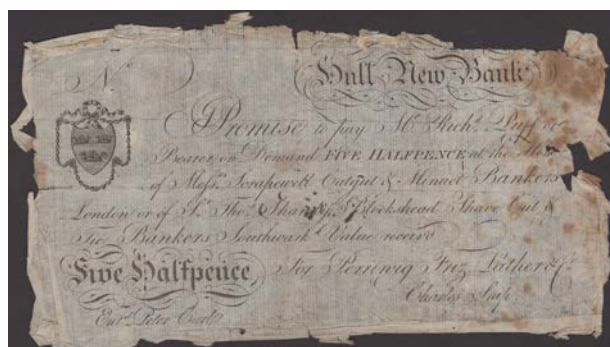 Nº
Hull New Bank
Promise to pay Mr Richd. Puff or
Bearer on Demand FIVE HALFPENCE at the
of Messrs. Scrapewell Catgut & Minuet Bankers
London or of Sr. Thos. Blockhead Shave Cut &
Tie Bankers Southwark Value receivd
Five Halfpence
For Perriwig Friz Lather & Co.
Charles Snip
Entd. Peter Curl